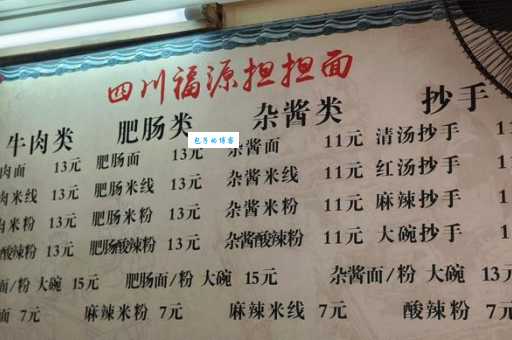 四川福源担担面
牛肉类 肥肠类 杂酱类 抄手
包子的博客
肉面 13元 肥肠面 13元 杂酱面 11元 清汤抄手 1
肉米线 13元 肥肠米线 13元 杂酱米线 11元 红汤抄手 1
肉米粉 13元 肥肠米粉 13元 杂酱米粉 11元 麻辣抄手 1
酸辣粉 13元 肥肠酸辣粉 13元 杂酱酸辣粉 11元 大碗抄手 1
面/粉 大碗 15元 肥肠面/粉 大碗 15元 杂酱面/粉 大碗 13元
面 7元 麻辣米粉 7元 麻辣米线 7元 酸辣粉 7元